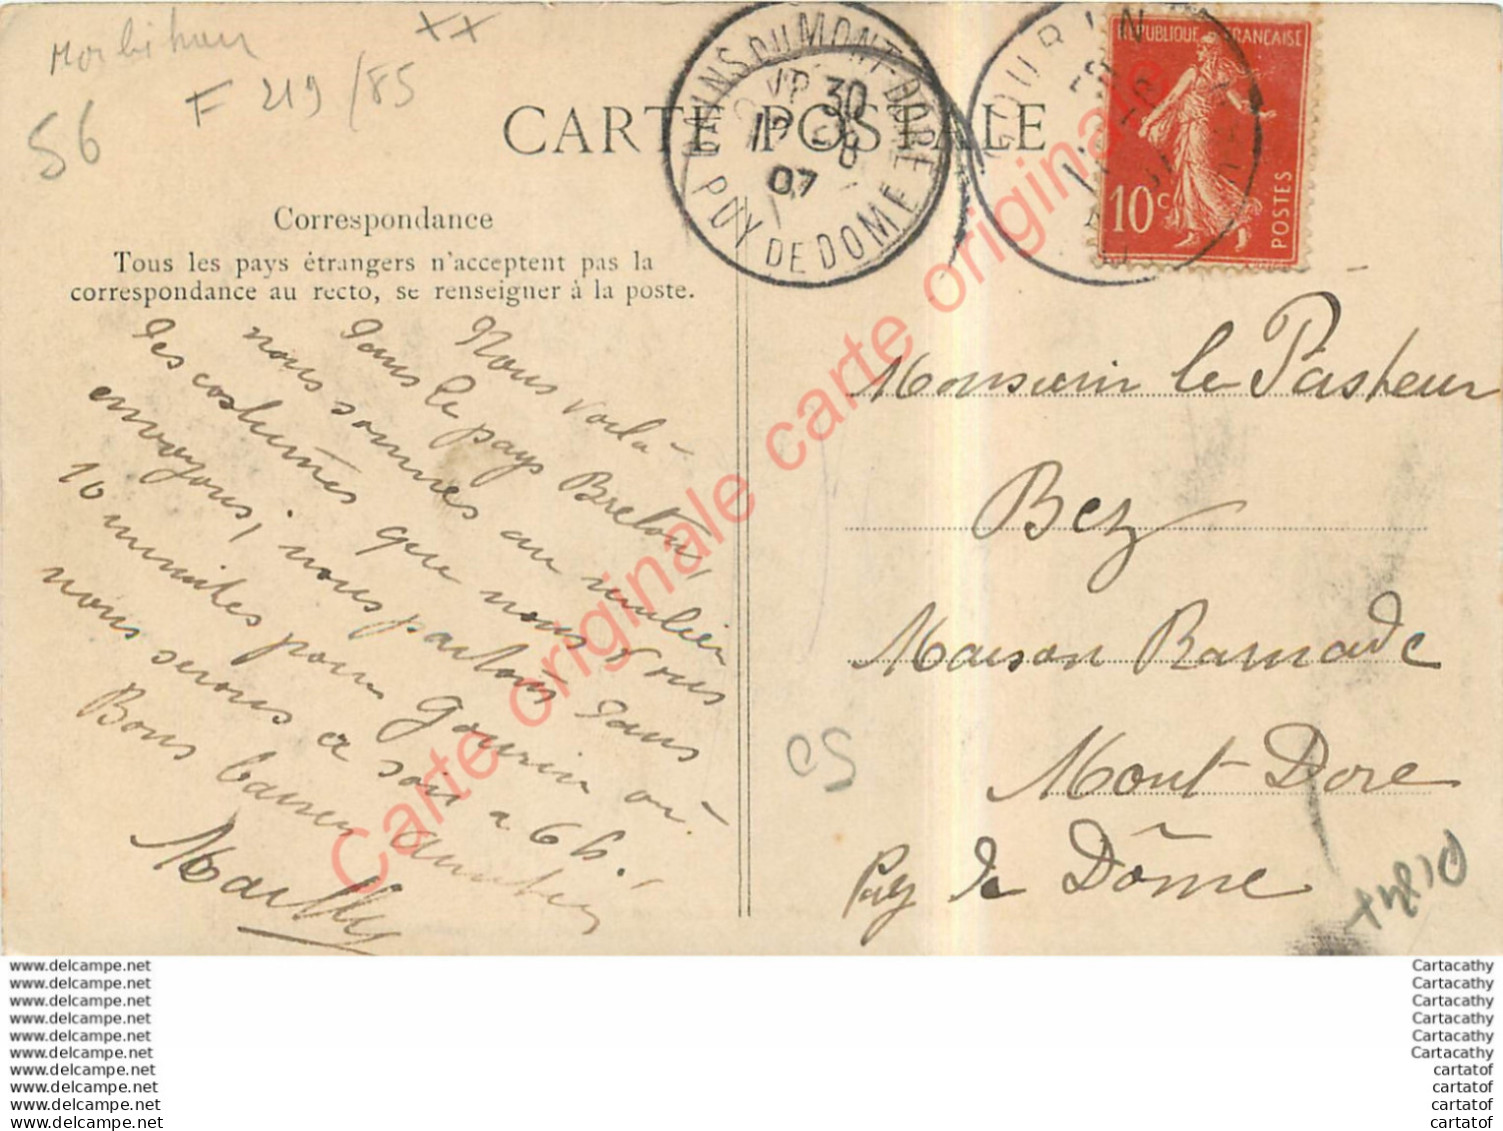 Morbihan
XX
F 219/85
56
CARTE POSTALE
BAINS DU MONT-DORE
30
8
07
PUY DE DOME
GOURIN
REPUBLIQUE FRANÇAISE
10c
POSTES
Correspondance
Tous les pays étrangers n'acceptent pas la
correspondance au recto, se renseigner à la poste.
Nous voilà
dans le pays Breton,
nous sommes au milieu
des costumes que nous vous
envoyons, nous partons dans
10 minutes pour Gourin où
nous serons ce soir a 6 h.
Bons baisers
Monsieur le Pasteur
Bez
Maison Ramade
Mont Dore
Puy de Dôme
50
Carte originale carte originale
www.delcampe.net
www.delcampe.net
www.delcampe.net
www.delcampe.net
www.delcampe.net
www.delcampe.net
www.delcampe.net
www.delcampe.net
www.delcampe.net
www.delcampe.net
Cartacathy
Cartacathy
Cartacathy
Cartacathy
Cartacathy
Cartacathy
cartatof
cartatof
cartatof
cartatof